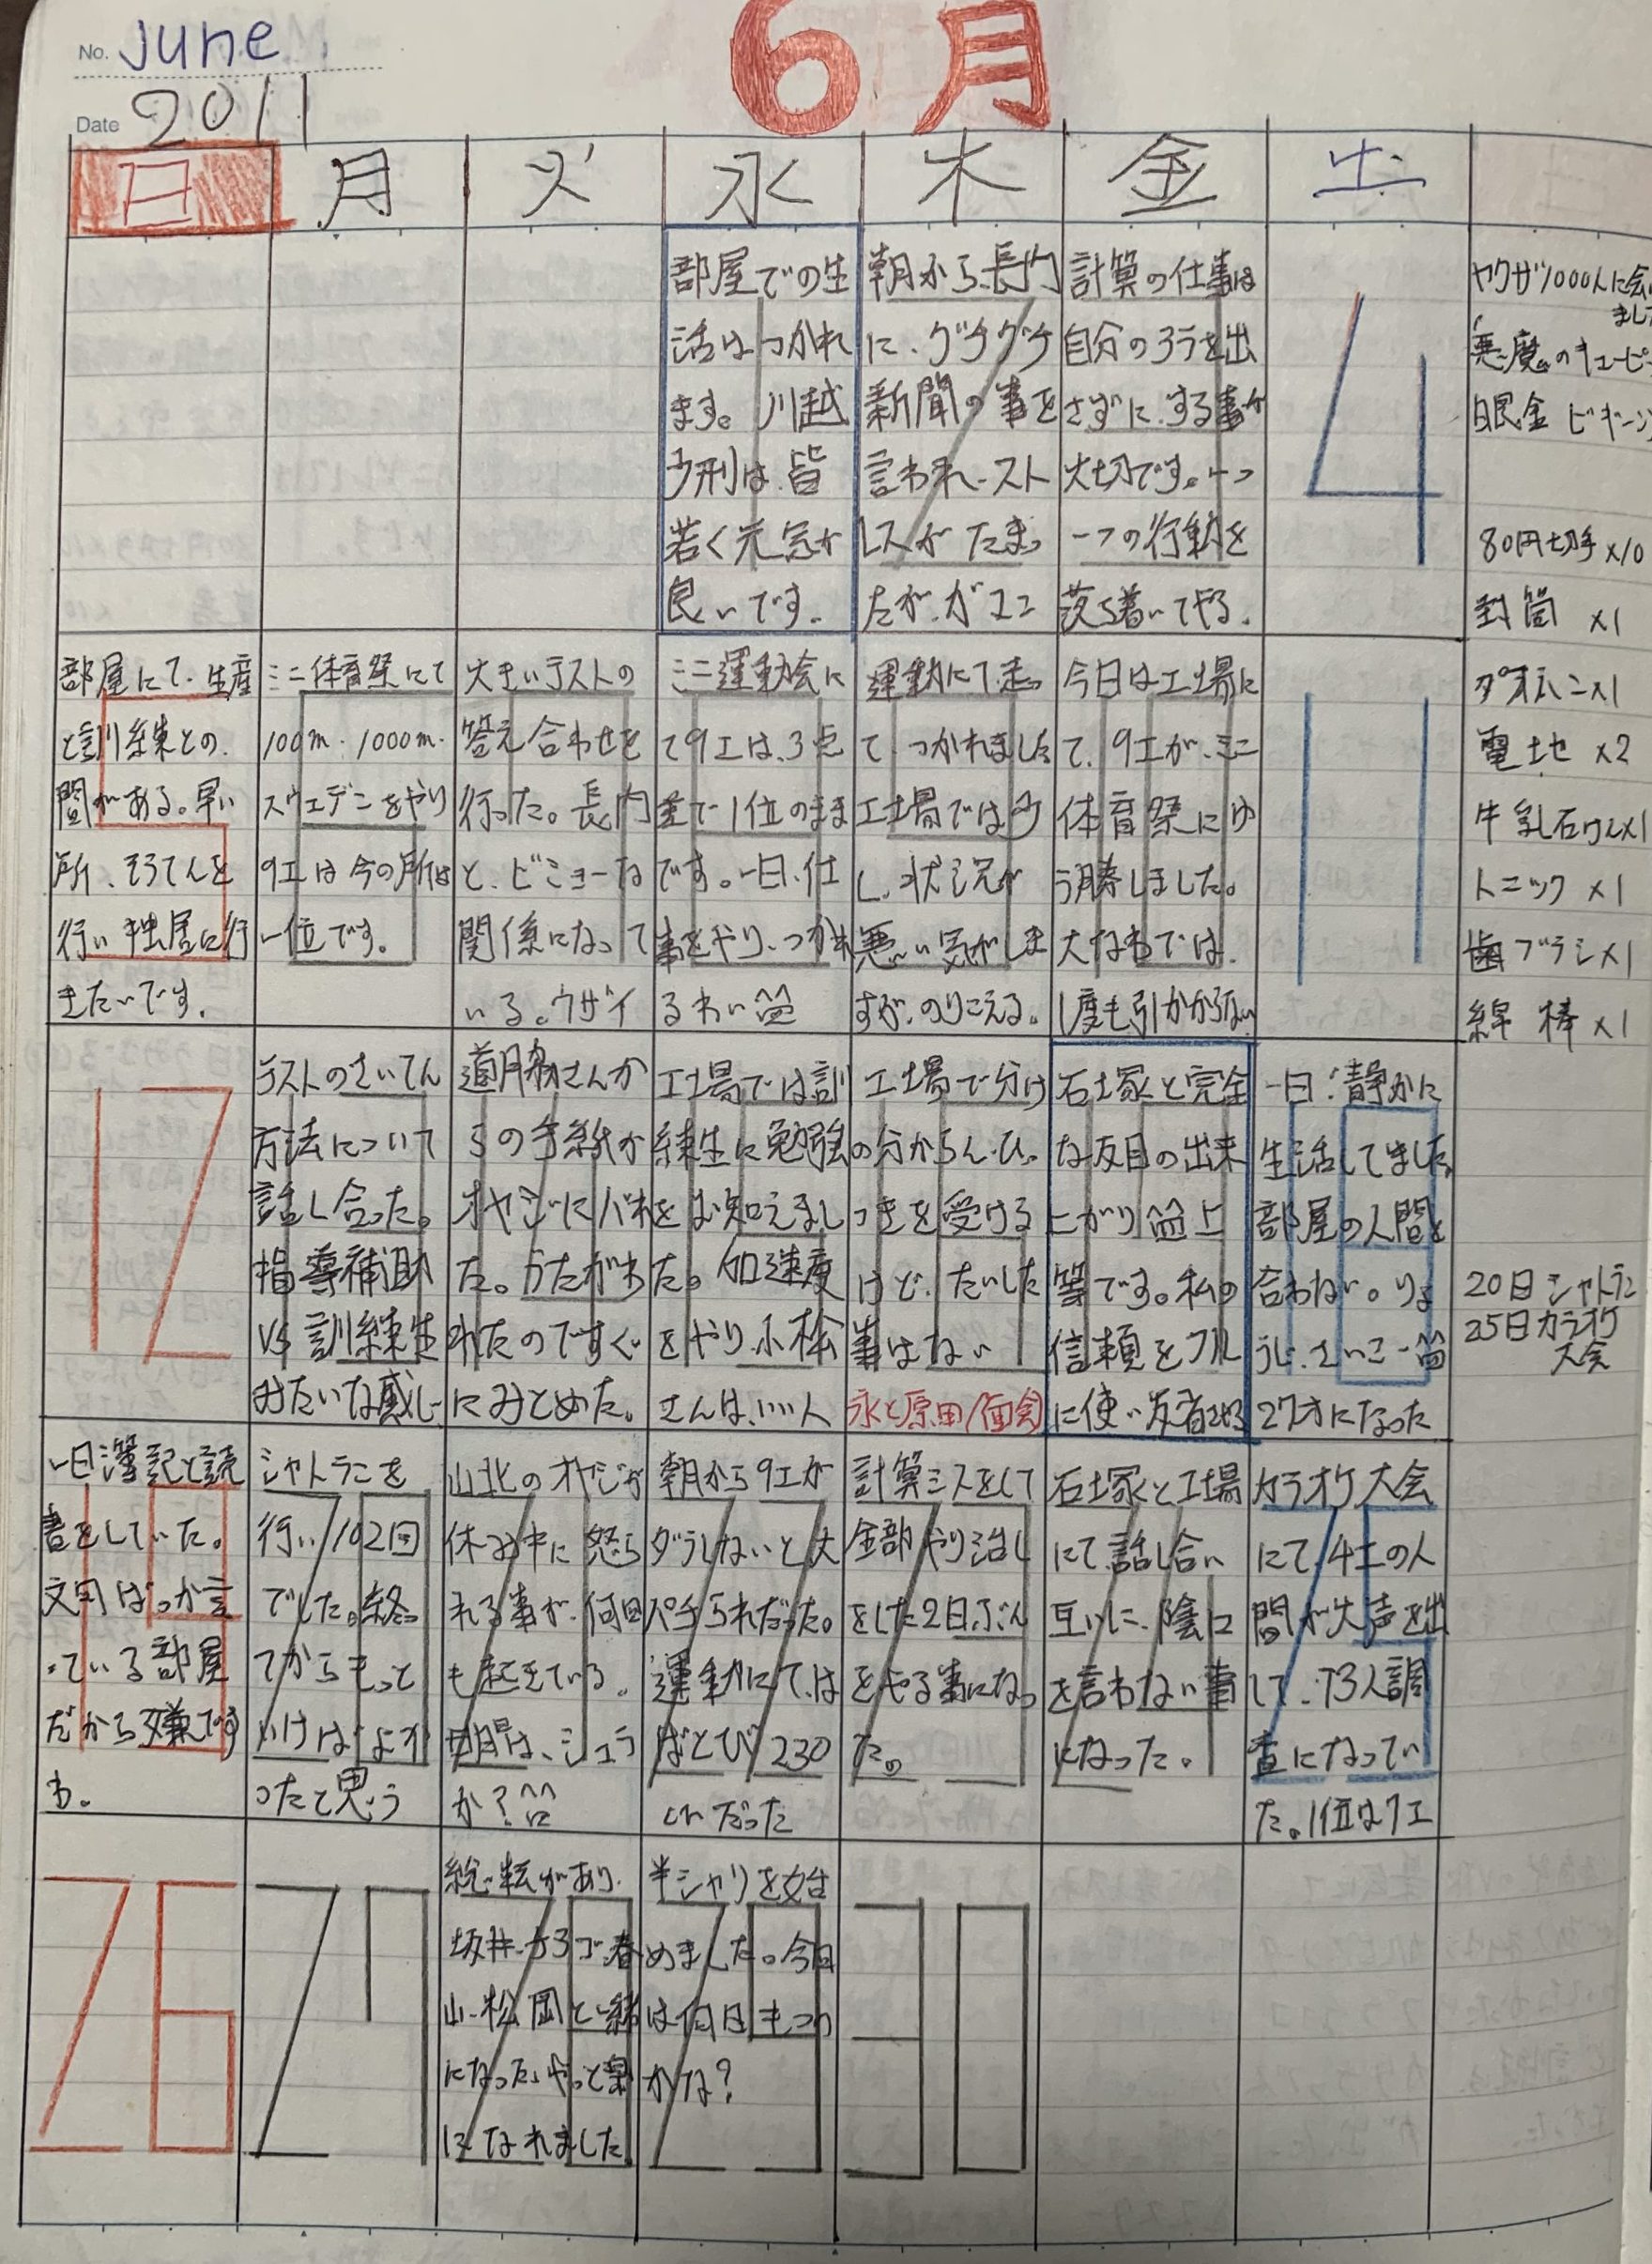 No. June
6月
Date 2011
日 月 火 水 木 金 土
部屋での生
活はつかれ
ます。川越
少刑は皆
若く元気が
良いです。
朝から、長内
に、グチグチ
新聞の事を
言われ、スト
レスがたまっ
たが、ガマン
計算の仕事は
自分のカラを出
さずに、する事が
大切です。一つ
一つの行動を
落ち着いてやる。
4
部屋にて、生産
と訓練との、
間がある。早い
所、そろばんを
行い独居に行
きたいです。
5
ミニ体育祭にて
100m・1000m・
スウェデンをやり
9工は今の所は
一位です。
6
大きいテストの
答え合わせを
行った。長内
と、ビミョーな
関係になって
いる。ウザイ
7
ミニ運動会に
て9工は、3点
差で1位のまま
です。一日、仕
事をやり、つかれ
るわい
8
運動にて、走っ
て、つかれました
工場では少
し、状況が
悪い気がしま
すが、のりこえる。
9
今日は工場に
て、9工が、ミニ
体育祭にゆ
う勝しました。
大なわでは、
1度も引かからない
10
11
12
テストのさいてん
方法について
話し合った。
指導補助
VS 訓練生
みたいな感じ
13
道脇さんか
らの手紙が
オヤジにバれ
た。かたがわ
れたのですぐ
にみとめた。
14
工場では訓
練生に勉強
をお知えまし
た。加速度
をやり、小桧
さんは、いい人
15
工場で分け
の分からん、ひっ
つきを受ける
けど、たいした
事はない
永と原田/面会
16
石塚と完全
な反目の出来
上がり 上
等です。私の
信頼をフル
に使い反省させる
17
一日、静かに
生活してました。
部屋の人間と
合わない。りょ
うじ、さいこー
27才になった
18
一日簿記と読
書をしていた。
文句ばっか言
っている部屋
だから嫌です
わ。
19
シャトランを
行い102回
でした。終っ
てからもっと
いけばよか
ったと思う
20
山北のオヤジが
休み中に怒ら
れる事が、何回
も起きている。
明日は、シュラ
か?
21
朝から9工が
ダラしないと大
パチられだった。
運動にて、は
ばとび230
cmだった
22
計算ミスをして
全部やり治し
をした2日ぶん
をやる事になっ
た。
23
石塚と工場
にて、話し合い
互いに、陰口
を言わない事
になった。
24
カラオケ大会
にて、4工の人
間が大声を出
して、73人調
査になってい
た。1位は7工
25
26
27
総転があり、
坂井、カラゴ、春
山、松岡と一緒
になった、やっと楽
になれました
28
半シャリを始
めました。今日
は何日もつの
かな?
29
30
ヤクザ1000人に会い
まし
悪魔のキューピ
眠金 ビギーン
80円切手×10
封筒 ×1
タオル ×1
電地 ×2
牛乳石けん×1
トニック ×1
歯ブラシ×1
綿棒 ×1
20日シャトラン
25日カラオケ
大会